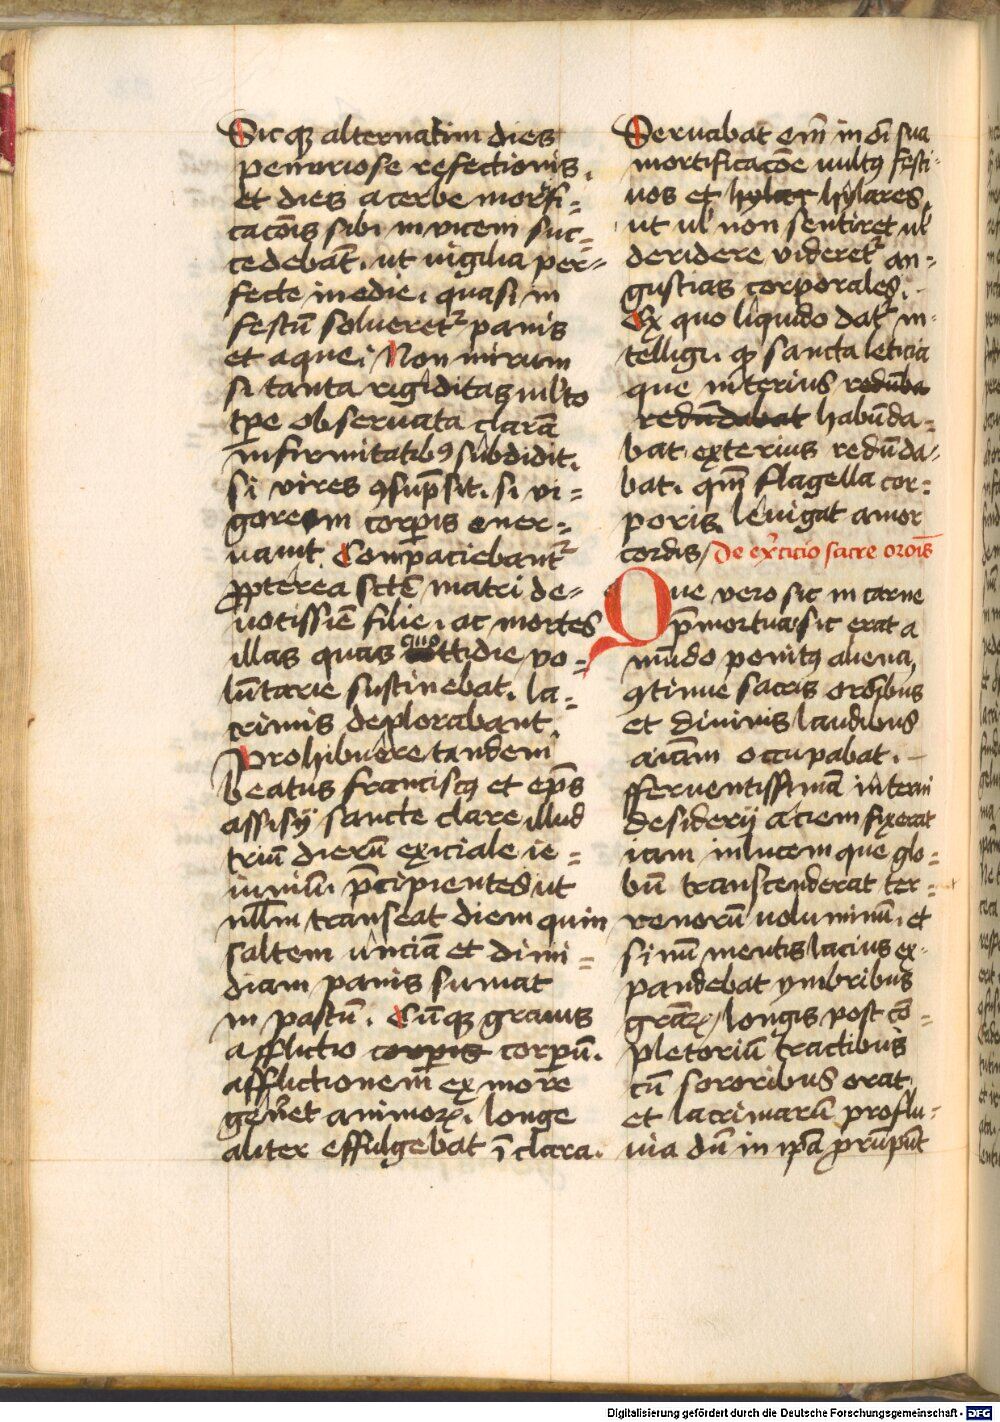 Sicq alternatim dies
penuriose refectionis,
et dies acerbe mortifi=
cacōis sibi invicem suc=
cedebāt, ut vigilia per=
fecte inedie, quasi in
festū solveret panis
et aque. Non mirum
si tanta rigiditas mlto
tpe observata clarā
infirmitatibꝰ subdidit,
si vires ꝯsūpsit, si vi=
gorem corpis ener=
vavit. Compaciebant
ꝓpterea scte matri de=
votissīe filie, ac mortes
illas quas quottidie vo=
lūtarie sustinebat, la=
crimis deplorabant.
Prohibuere tandem
beatus franciscꝰ et eps
assisij sancte clare illud
triū dierū exiciale ie=
iuniū, p̄cipientes ut
nullm transeat diem quin
saltem unciā et dimi=
diam panis sumat
in pastū. Cūq gravis
afflictio corpis corpū.
afflictionem ex more
gen̄et animoꝝ, longe
aliter effulgebat ī clara.
Servabat em̄ in oī sua
mortificacōe vultꝰ festi=
vos et hylar hylares,
ut vl non sentiret vl
deridere videret an=
gustias corporales.
Ex quo liquido dat in=
telligi, ꝙ sancta leticia
que interius redūba
redūdabat habūda=
bat exterius redūda=
bat, qm̄ flagella cor=
poris levigat amor
cordis De ex̄cicio sacre orōis
Que vero sic in carne
p̄mortua sic erat a
mūdo penitꝰ aliena,
ꝯtinue sacris orōibus
et divinis laudibus
aīam occupabat.
fferventissimā interni
desiderij aciem fixerat
iam in lucem que glo=
bū transcenderat ter=
renorū voluminū, et
sinū mentis lacius ex=
pandebat ymbribus
grāꝝ, longis post cō=
pletoriū tractibus
cū sororibus orat,
et lacrimarū proflu=
via dū in ipā prūpūt
Digitalisierung gefördert durch die Deutsche Forschungsgemeinschaft - DFG